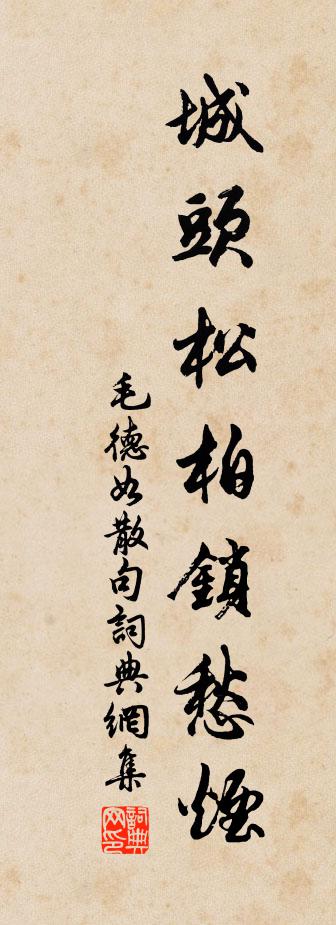 城頭松柏鎖愁煙
毛德如散句詞典網集
詞典网印